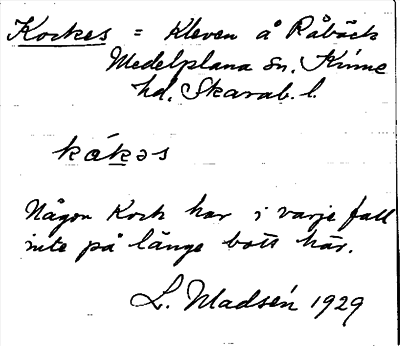 Kockes = Kleven å Råbäck
Medelplana sn. Kinne
hd. Skarab. l.
kɷkəs
Någon Kock har i varje fall
inte på länge bott här.
L. Madsén 1929